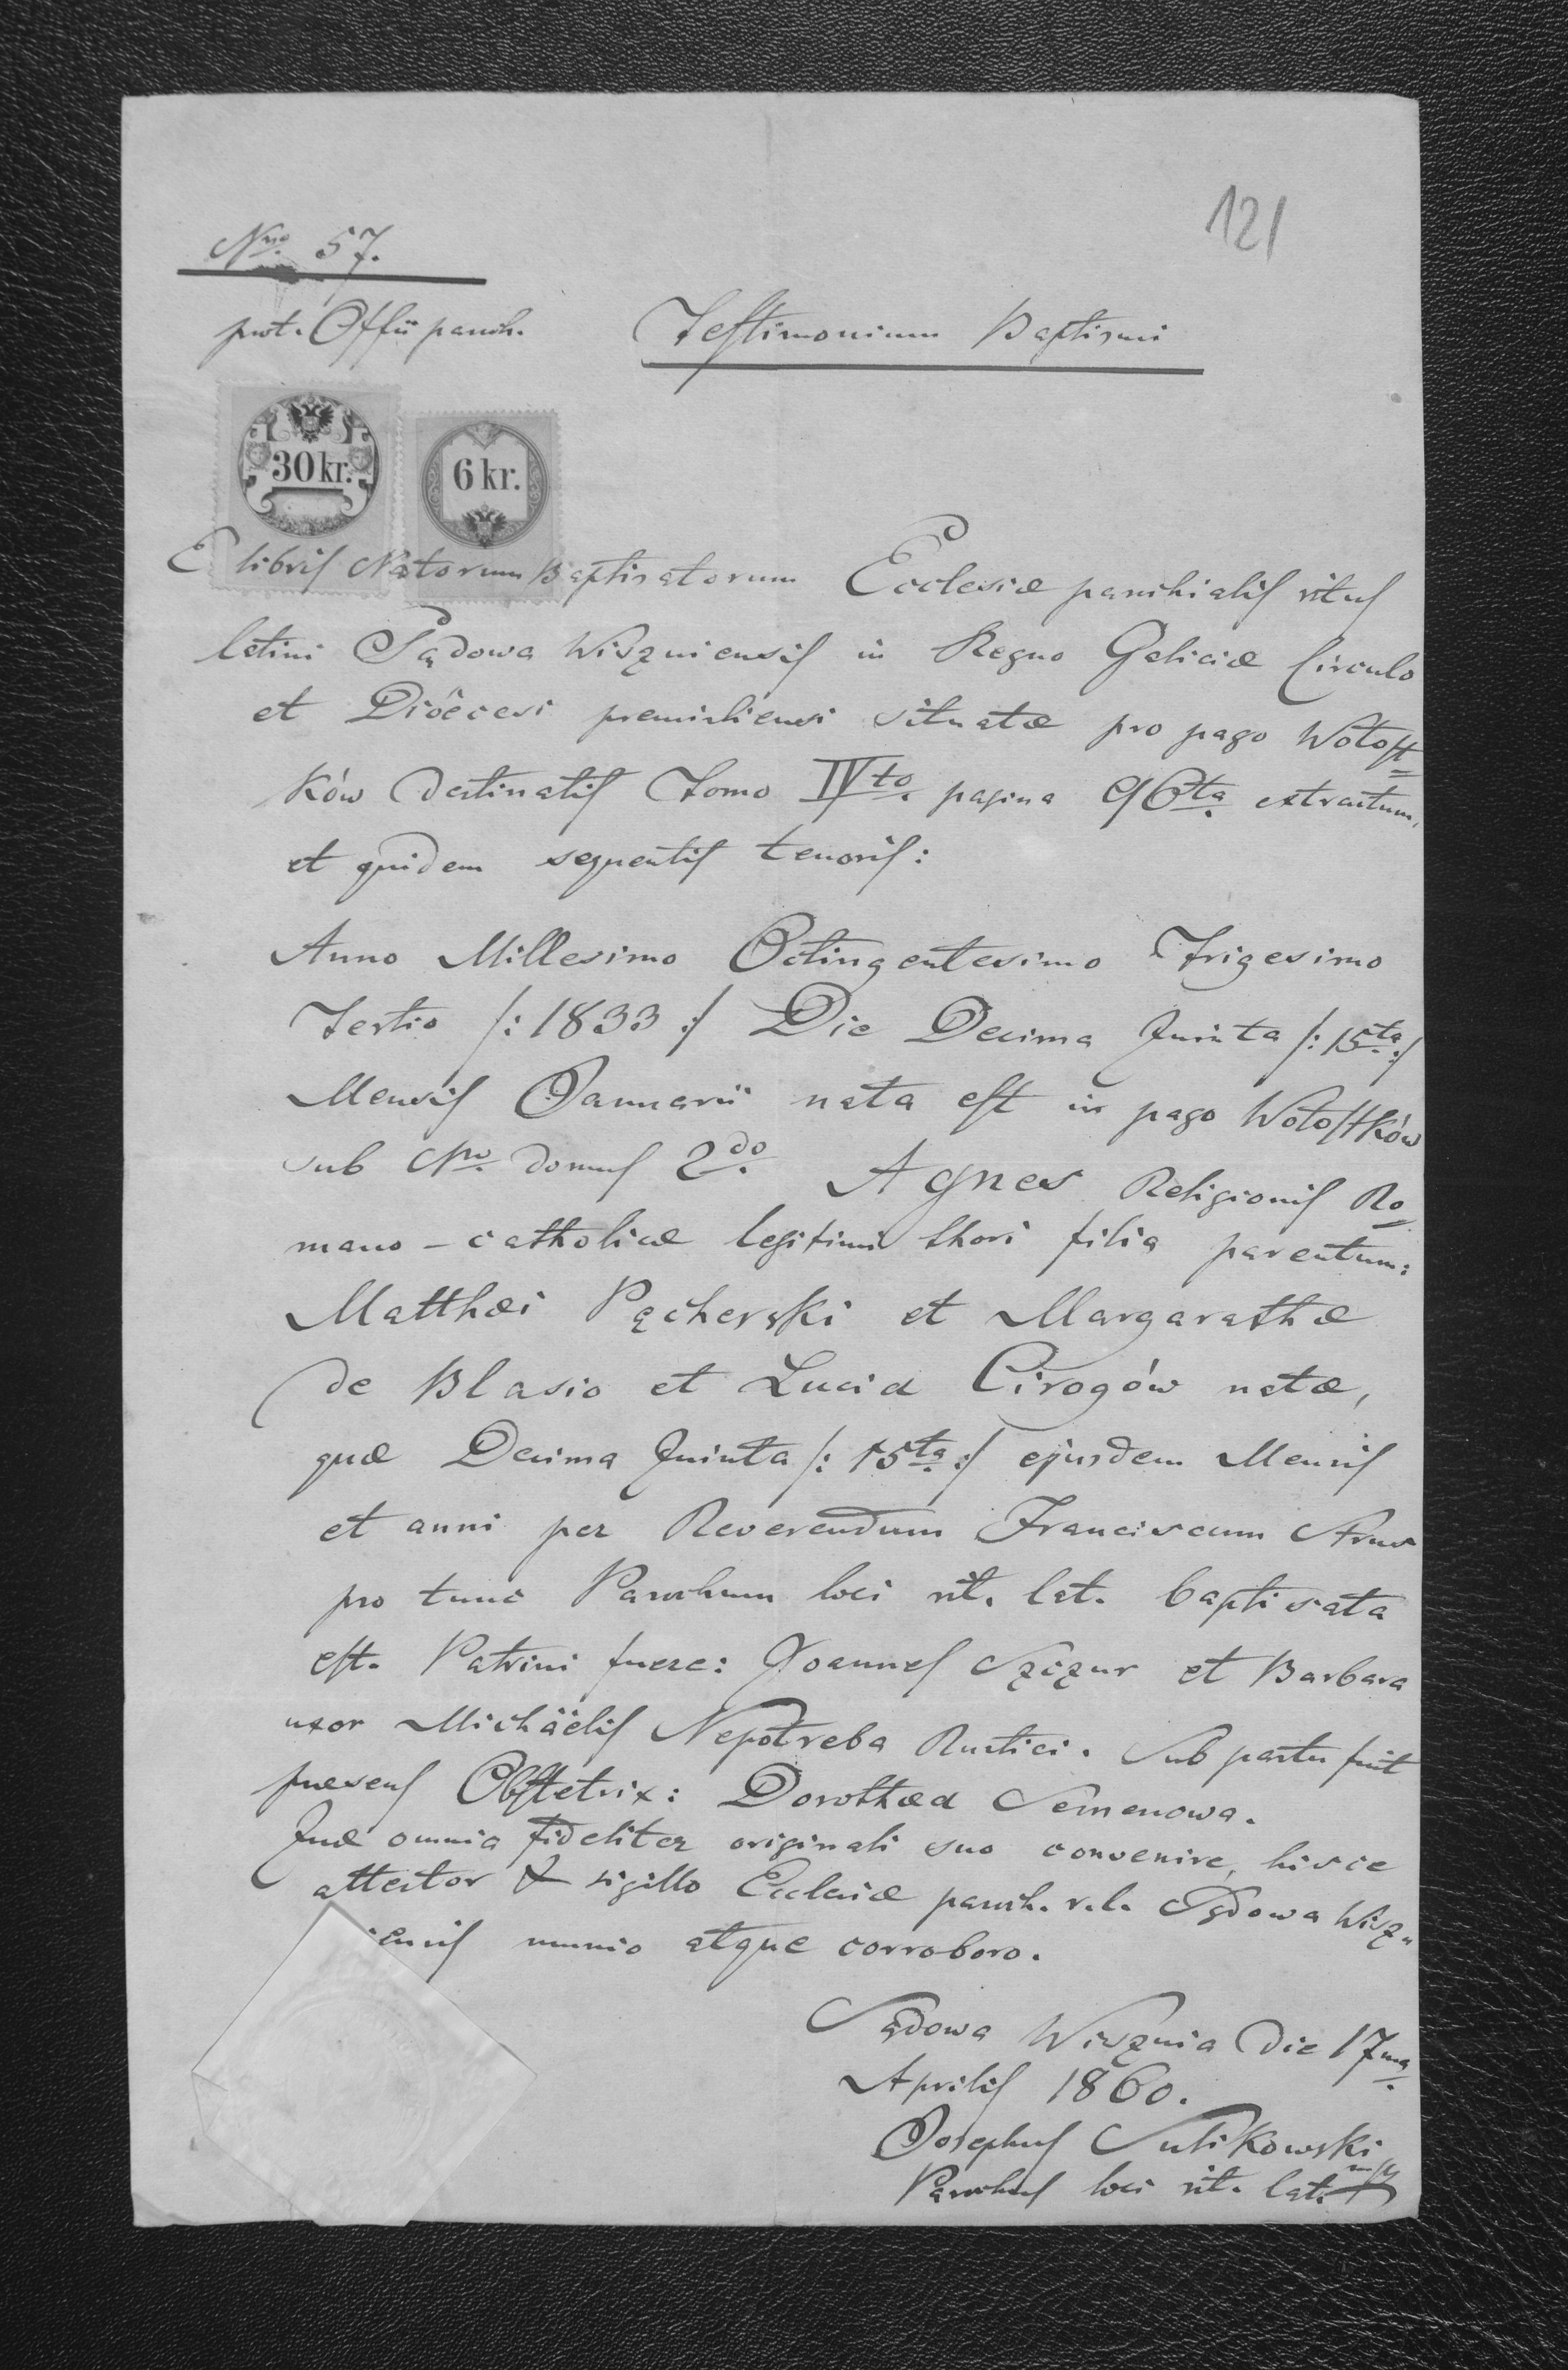 121
Nro. 57.
prot. Offii paroch.
Testimonium Baptismi
30 kr.
6 kr.
E libris Natorum Baptisatorum Ecclesiæ parochialis ritus
latini Sądowa Wiszniensis in Regno Galiciæ Circulo
et Dióecesi premisliensi situatæ pro pago Wołost=
ków destinatis Tomo IVto. pagina 96ta. extractum,
et quidem sequentis tenoris:
Anno Millesimo Octingentesimo Trigesimo
Tertio /: 1833 :/ Die Decima Quinta /: 15ta. :/
Mensis Januarii nata est in pago Wołostków
sub Nro. domus 2do. Agnes Religionis Ro=
mano-catholicæ legitimi thori filia parentum:
Matthæi Pącherski et Margarathæ
de Blasio et Lucia Cirogów natæ,
quæ Decima Quinta /: 15ta. :/ ejusdem Mensis
et anni per Reverendum Franciscum
pro tunc Parochum loci rit. lat. baptisata
est. Patrini fuere: Joannes Szczur et Barbara
uxor Michäëlis Nepotreba Rustici. Sub partu fuit
præsens Obstetrix: Dorothæa Semenowa.
Quæ omnia fideliter originali suo convenire, hisce
attestor & sigillo Ecclesiæ paroch. r. l. Sądowa Wisz=
iensis munio atque corroboro.
Sądowa Wisznia die 17ma.
Aprilis 1860.
Josephus Sulikowski
mp
Parochus loci rit. lat.